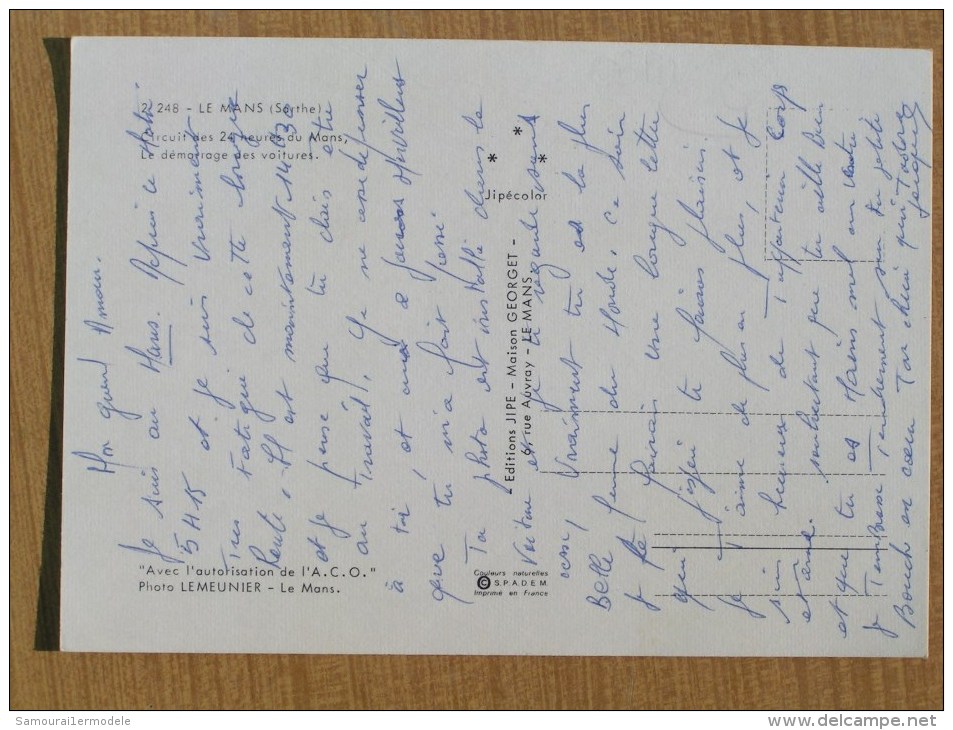 2. 248 - LE MANS (Sarthe)
Circuit des 24 heures du Mans,
Le démarrage des voitures.
* * * *
Jipécolor
- Editions JIPE - Maison GEORGET -
69, rue Auvray - LE MANS
"Avec l'autorisation de l'A.C.O."
Photo LEMEUNIER - Le Mans.
Couleurs naturelles
© S.P.A.D.E.M.
Imprimé en France
Mon grand Amour.
Je suis au Mans. Depuis ce matin
5H15 et je suis vraiment
très fatigué de cette longue
Route. Il est maintenant 14H30
et je pense que tu dois être
au travail. Je ne cesse de penser
à toi, et au merveilleux
que tu m'a fait
Ta photo est installée dans la
voiture et je la regarde souvent
Vraiment tu es la plus
Belle femme du Monde. Ce soir
je te ferais une longue lettre
qui j'espère te feras plaisir.
Je t'aime de plus en plus, et je
suis heureux de t'appartenir corps
et âme. souhaitant que tu aille bien
et que tu es moins mal au ventre
Je t'embrasse Tendrement sur Ta petite
Bouche en cœur Ton chéri qui t'adore
Jacques
Samourai1ermodele
delcampe.net